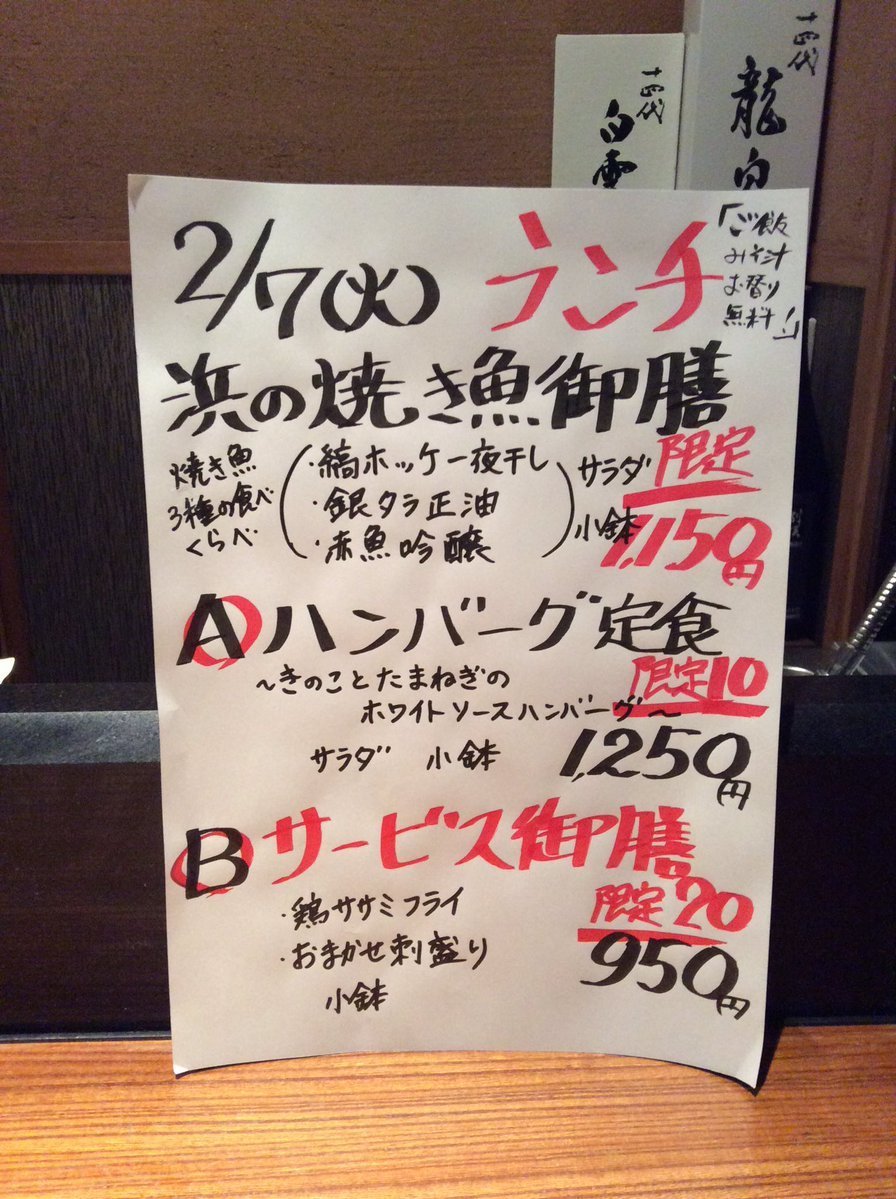 十四代
白雲
十四代
龍泉
2/7(火) ランチ
「ご飯
みそ汁
お替り
無料!」
浜の焼き魚御膳
焼き魚
3種の食べ
くらべ
・縞ホッケ一夜干し
・銀タラ正油
・赤魚吟醸
サラダ
小鉢
限定
1,150円
A ハンバーグ定食
～きのことたまねぎの
ホワイトソースハンバーグ～
限定10
サラダ 小鉢
1,250円
B サービス御膳
・鶏ササミフライ
・おまかせ刺盛り
小鉢
限定20
950円